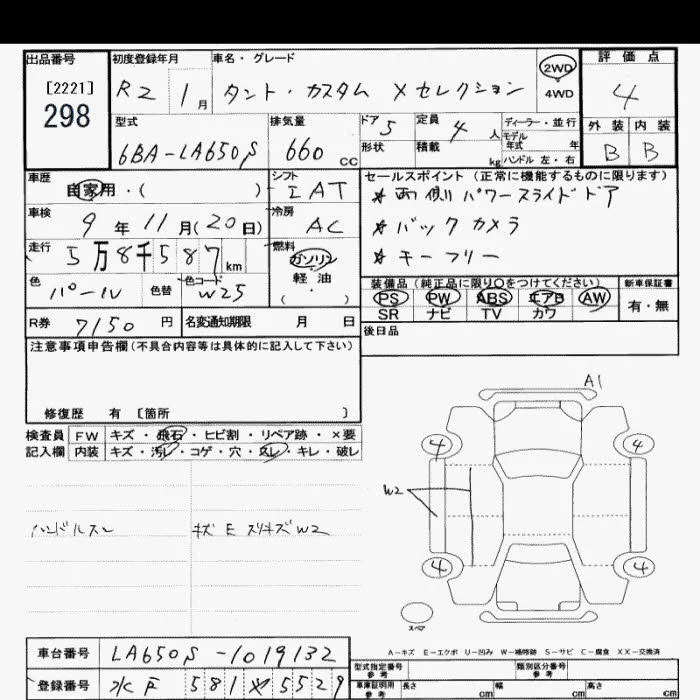 出品番号
[2221]
298
初度登録年月
R2 1月
車名・グレード
タント・カスタム Xセレクション
2WD
4WD
評価点
4
外装 内装
B B
型式
6BA-LA650S
排気量
660 CC
ドア 5
形状
定員 4 人
積載 kg
ディーラー・並行
モデル年式 年
ハンドル 左・右
車歴
自家用・( )
シフト
IAT
車検
9年11月(20日)
冷房
AC
走行
5万8千587km
燃料
ガソリン・軽油
・( )
色
パール
色替
色コード
W25
R券 7150 円
名変通知期限 月 日
セールスポイント(正常に機能するものに限ります)
*両側パワースライドドア
*バックカメラ
*キーフリー
装備品(純正品に限り○をつけてください)
PS PW ABS エアB AW
SR ナビ TV カワ
新車保証書
有・無
後日品
注意事項申告欄(不具合内容等は具体的に記入して下さい)
修復歴 有 [箇所 ]
検査員記入欄
FW キズ・飛石・ヒビ割・リペア跡・×要
内装 キズ・汚レ・コゲ・穴・スレ・キレ・破レ
ハンドルスレ
キズ E スリキズ W2
A1
4
4
W2
4
4
スペア
A-キズ E-エクボ U-凹み W-補修跡 S-サビ C-腐食 XX-交換済
車台番号 LA650S-1019132
登録番号 水戸 581 5529
型式指定番号
参考
類別区分番号
参考
車庫証明用
参考
長さ cm
幅 cm
高さ cm